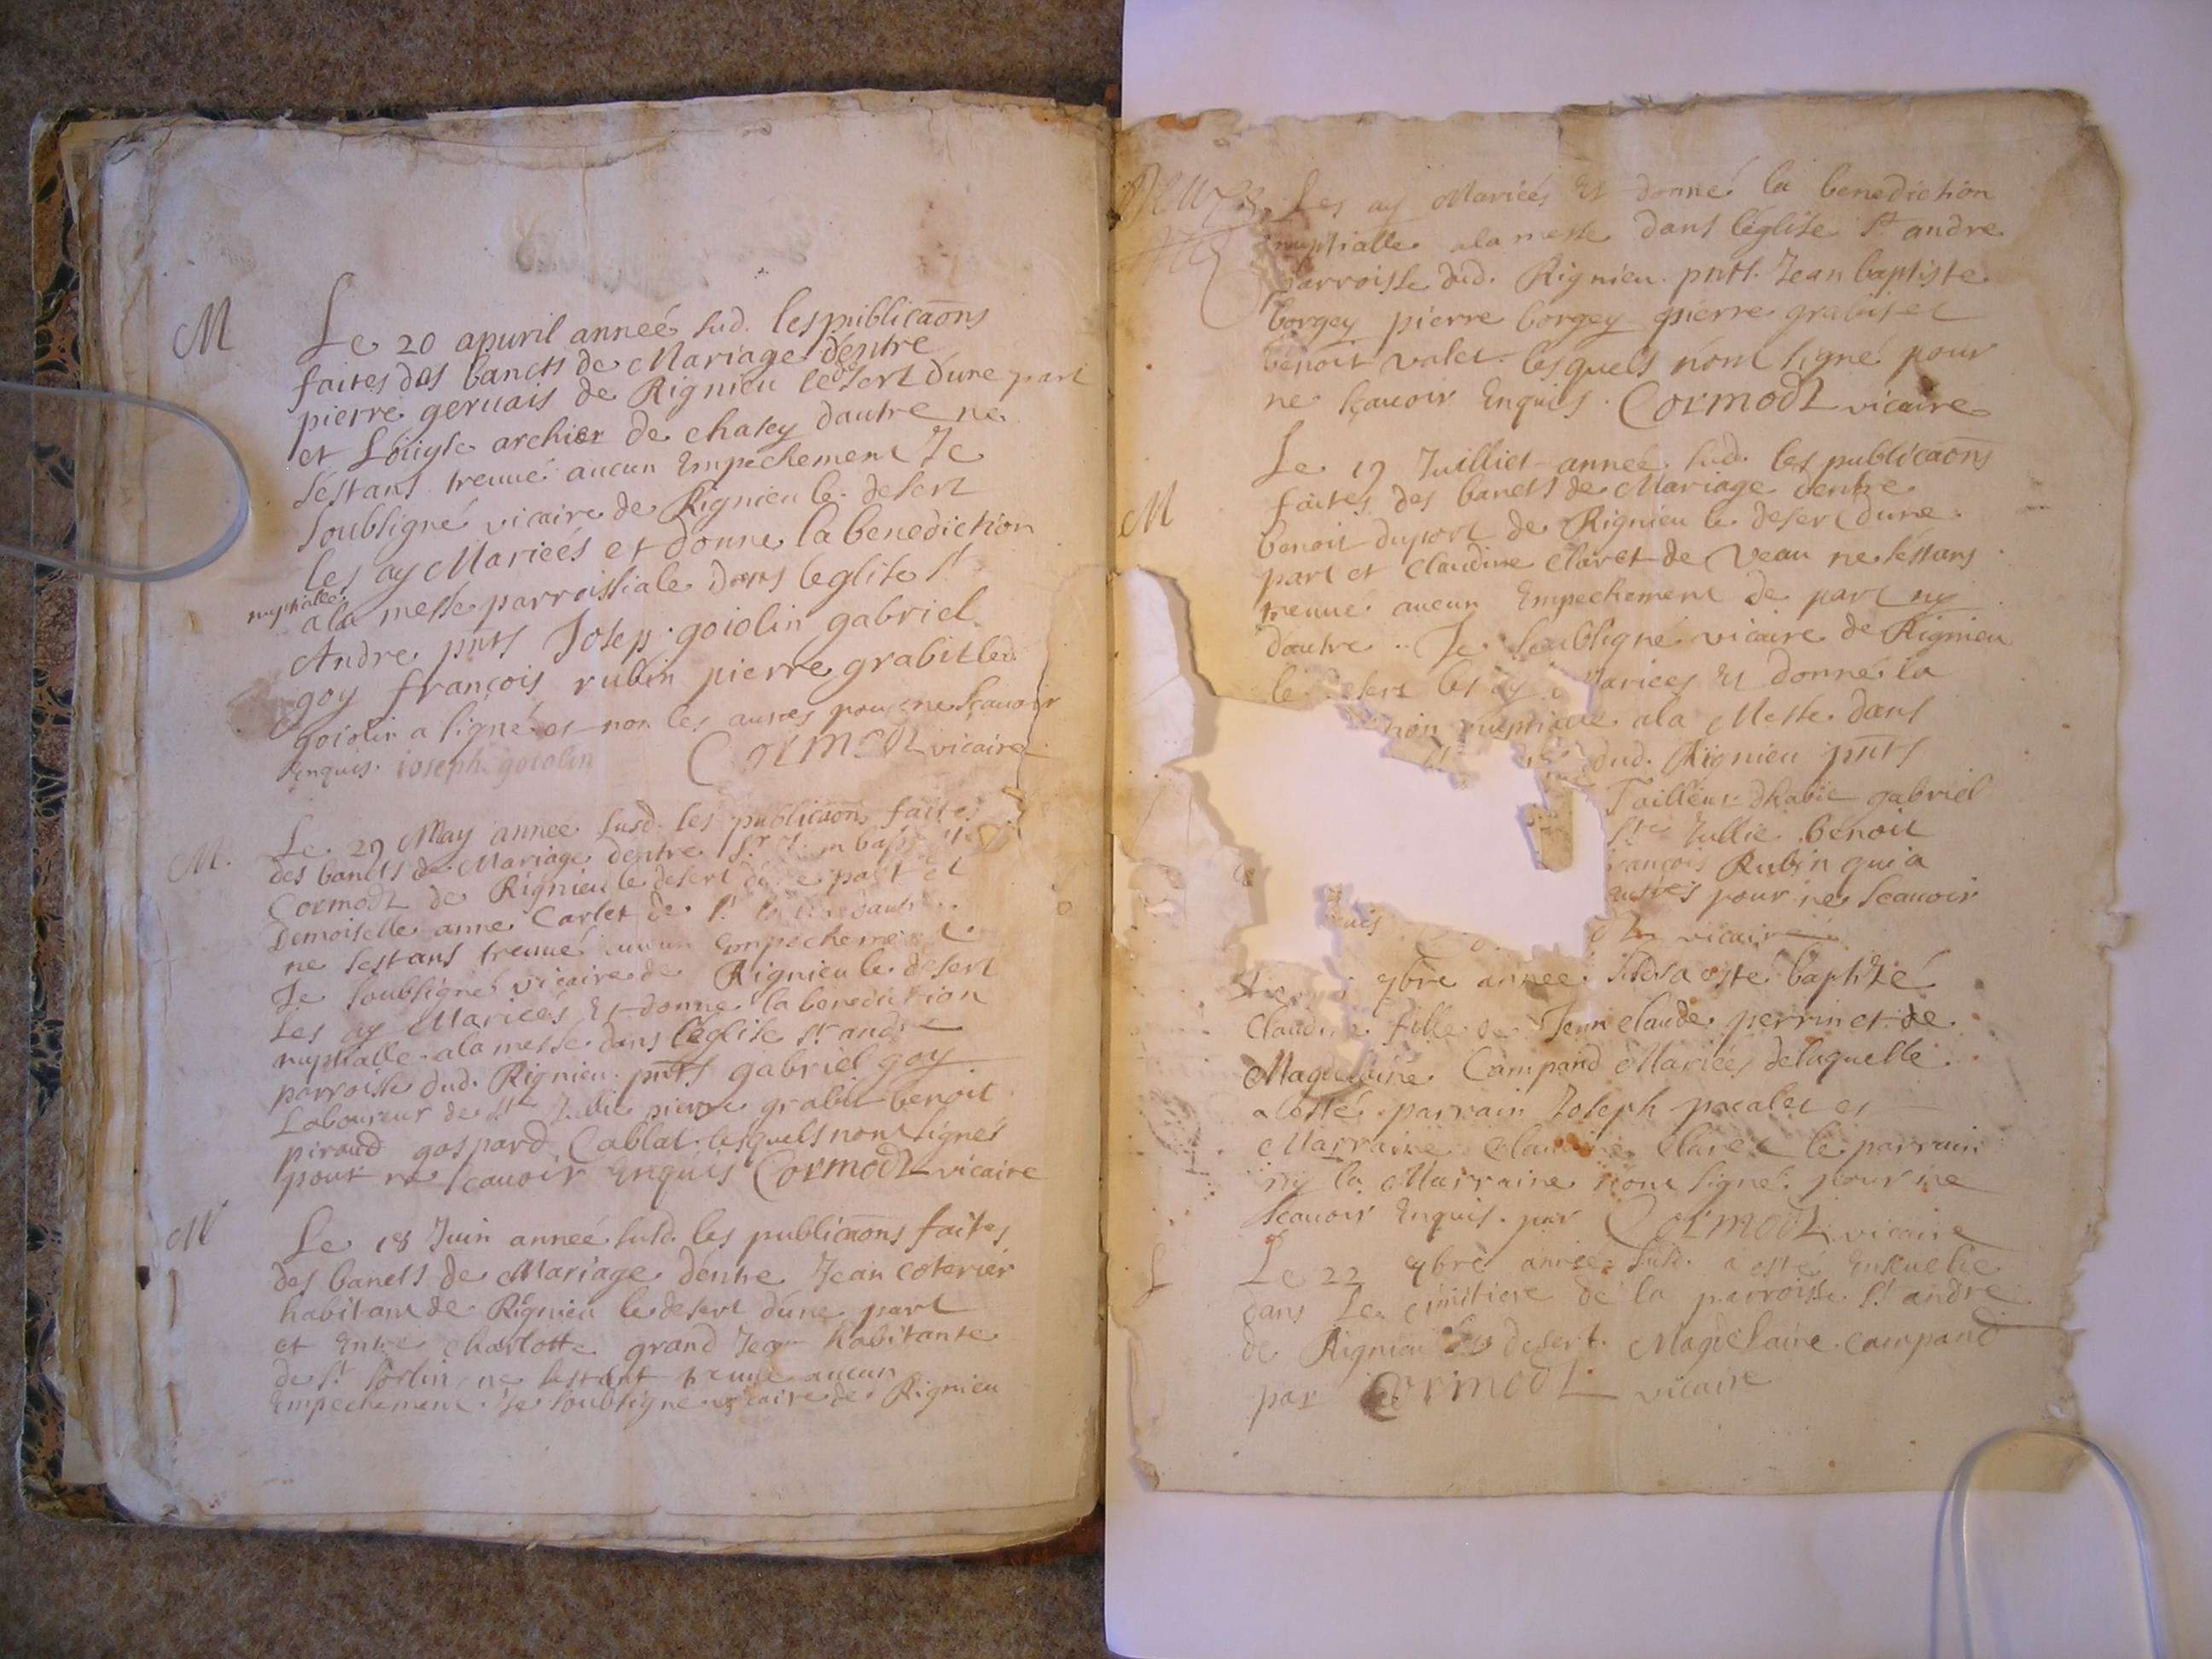 M
Le 20 apuril anneé sud. les publicaons
faites des bancts de Mariage dentre
pierre geruais de Rignieu le desert dune part
et Loüyse archier de chasey dautre ne
sestans treuué aucun Empechement Je
soubsigné vicaire de Rignieu le desert
les ay Mariées et donne la benediction
nuptialle
a la messe parroissiale dans leglise St
Andre pnts Josep goiolin gabriel
goy françois rubin pierre grabit led.
goiolin a signé et non les autres pour ne scauoir
Enquis. ioseph goiolin Cormodz vicaire
M.
Le 29 May annee susd. les publicaons faites
des bancts de Mariage dentre Sr
Cormodz de Rignieu le desert part et
Demoiselle anne Carlet de St
ne sestans treuué aucun Empechement
Je soubsigné vicaire de Rignieu le desert
les ay Marieés Et donne la benediction
nuptialle a la messe dans leglise St andre
parroisse dud. Rignieu pnts gabriel goy
Laboureur de St Jullie pierre grabit benoit
piraud gaspard Cablat lesquels nont signés
pour ne scauoir Enquis Cormodz vicaire
M
Le 18 Juin anneé susd. les publicaons faites
des bancts de Mariage dentre Jean coterier
habitant de Rignieu le desert dune part
et Entre charlotte grand Jean habitante
de St sorlin ne sestant treuué aucun
Empechement Je soubsigne vicaire de Rignieu
Les ay Mariées Et donné la benediction
nuptialle a la messe dans léglise St andre
parroisse dud. Rignieu pnts. Jean baptiste
borgey pierre borgey pierre grabit et
benoit valet lesquels nont signé pour
ne sçauoir Enquis. Cormodz vicaire
M
Le 19 Juilliet anneé sud. les publicaons
faites des bancts de Mariage dentre
benoit duport de Rignieu le desert dune
part et Claudine Claret de Veau ne sestans
treuué aucun Empechement de part ny
dautre Je soubsigné vicaire de Rignieu
le desert les ay Mariees Et donné la
nuptialle a la Messe dans
dud. Rignieu pnts
Tailleur dhabit gabriel
Jullie benoit
françois Rubin qui a
autres pour ne scauoir
vicaire
9bre anneé susd a esté baptizé
Claudine fille de Jean claude perrin et de
Magdelaine Campand Mariées de laquelle
a esté parrain Joseph pacalet et
Marraine Claudine Claret le parrain
ny la Marraine nont signé pour ne
scauoir Enquis. par Cormodz vicaire
S
Le 22 9bre anneé susd. a esté Enseuelie
dans Le cimitiere de la parroisse St andre
de Rignieu le desert. Magdelaine campand
par Cormodz vicaire